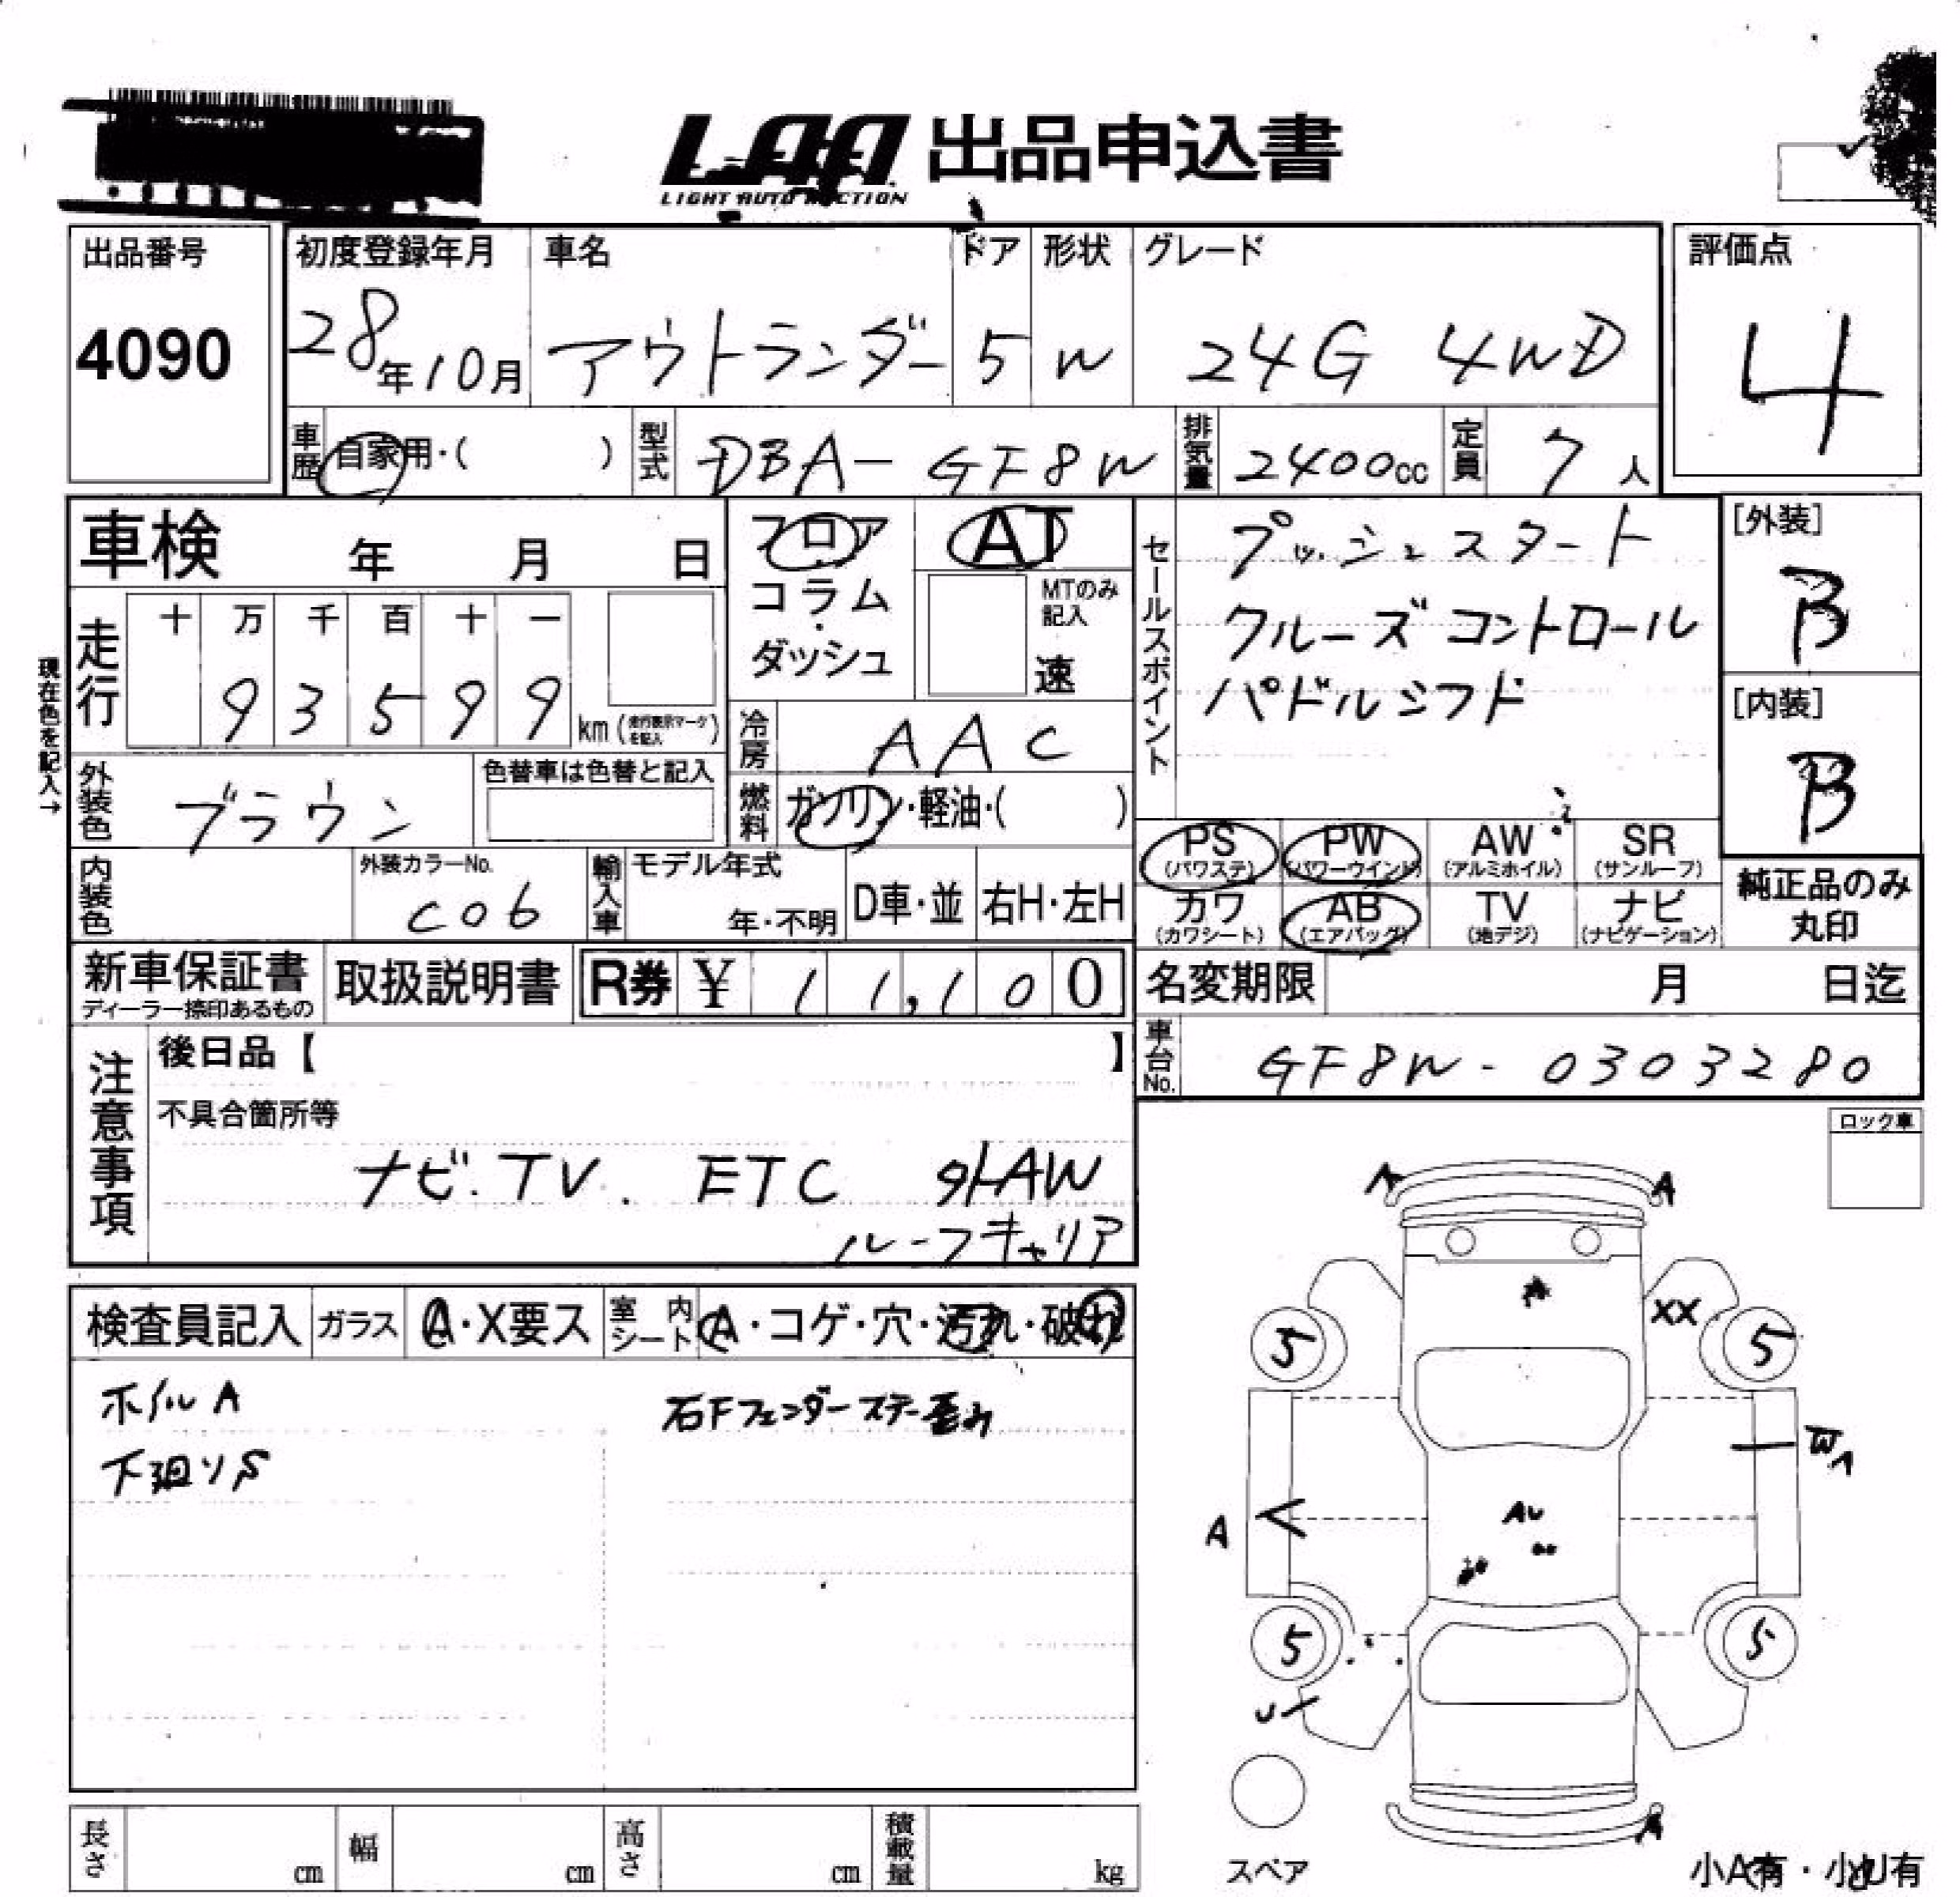 LAA 出品申込書
LIGHT AUTO AUCTION
出品番号
4090
初度登録年月
28年10月
車名
アウトランダー
ドア
5
形状
W
グレード
24G 4WD
評価点
4
車歴 自家用・( )
型式 DBA-GF8W
排気量 2400cc
定員 7人
車検 年 月 日
フロア
コラム
・
ダッシュ
AT
MTのみ
記入
速
セールスポイント
プッシュスタート
クルーズコントロール
パドルシフト
[外装]
B
[内装]
B
現在色を記入→
走行
十 万 千 百 十 一
9 3 5 9 9 km (走行表示マークを記入)
冷房 AAC
外装色 ブラウン
色替車は色替と記入
燃料 ガソリン・軽油・( )
PS (パワステ)
PW (パワーウインド)
AW (アルミホイル)
SR (サンルーフ)
カワ (カワシート)
AB (エアバッグ)
TV (地デジ)
ナビ (ナビゲーション)
純正品のみ
丸印
内装色
外装カラーNo.
C06
輸入車 モデル年式
年・不明
D車・並
右H・左H
新車保証書
ディーラー捺印あるもの
取扱説明書
R券 ¥ 11,100
名変期限 月 日迄
車台No. GF8W-0303280
注意事項
後日品【 】
不具合箇所等
ナビ.TV. ETC 外AW
ルーフキャリア
ロック車
検査員記入
ガラス A・X要ス
室内シート A・コゲ・穴・汚れ・破れ
ホイルA
下廻りS
右Fフェンダーステー歪み
A A
A
XX
5 5
W1
A
AU
5 5
U
A
スペア
小A有・小U有
長さ cm
幅 cm
高さ cm
積載量 kg